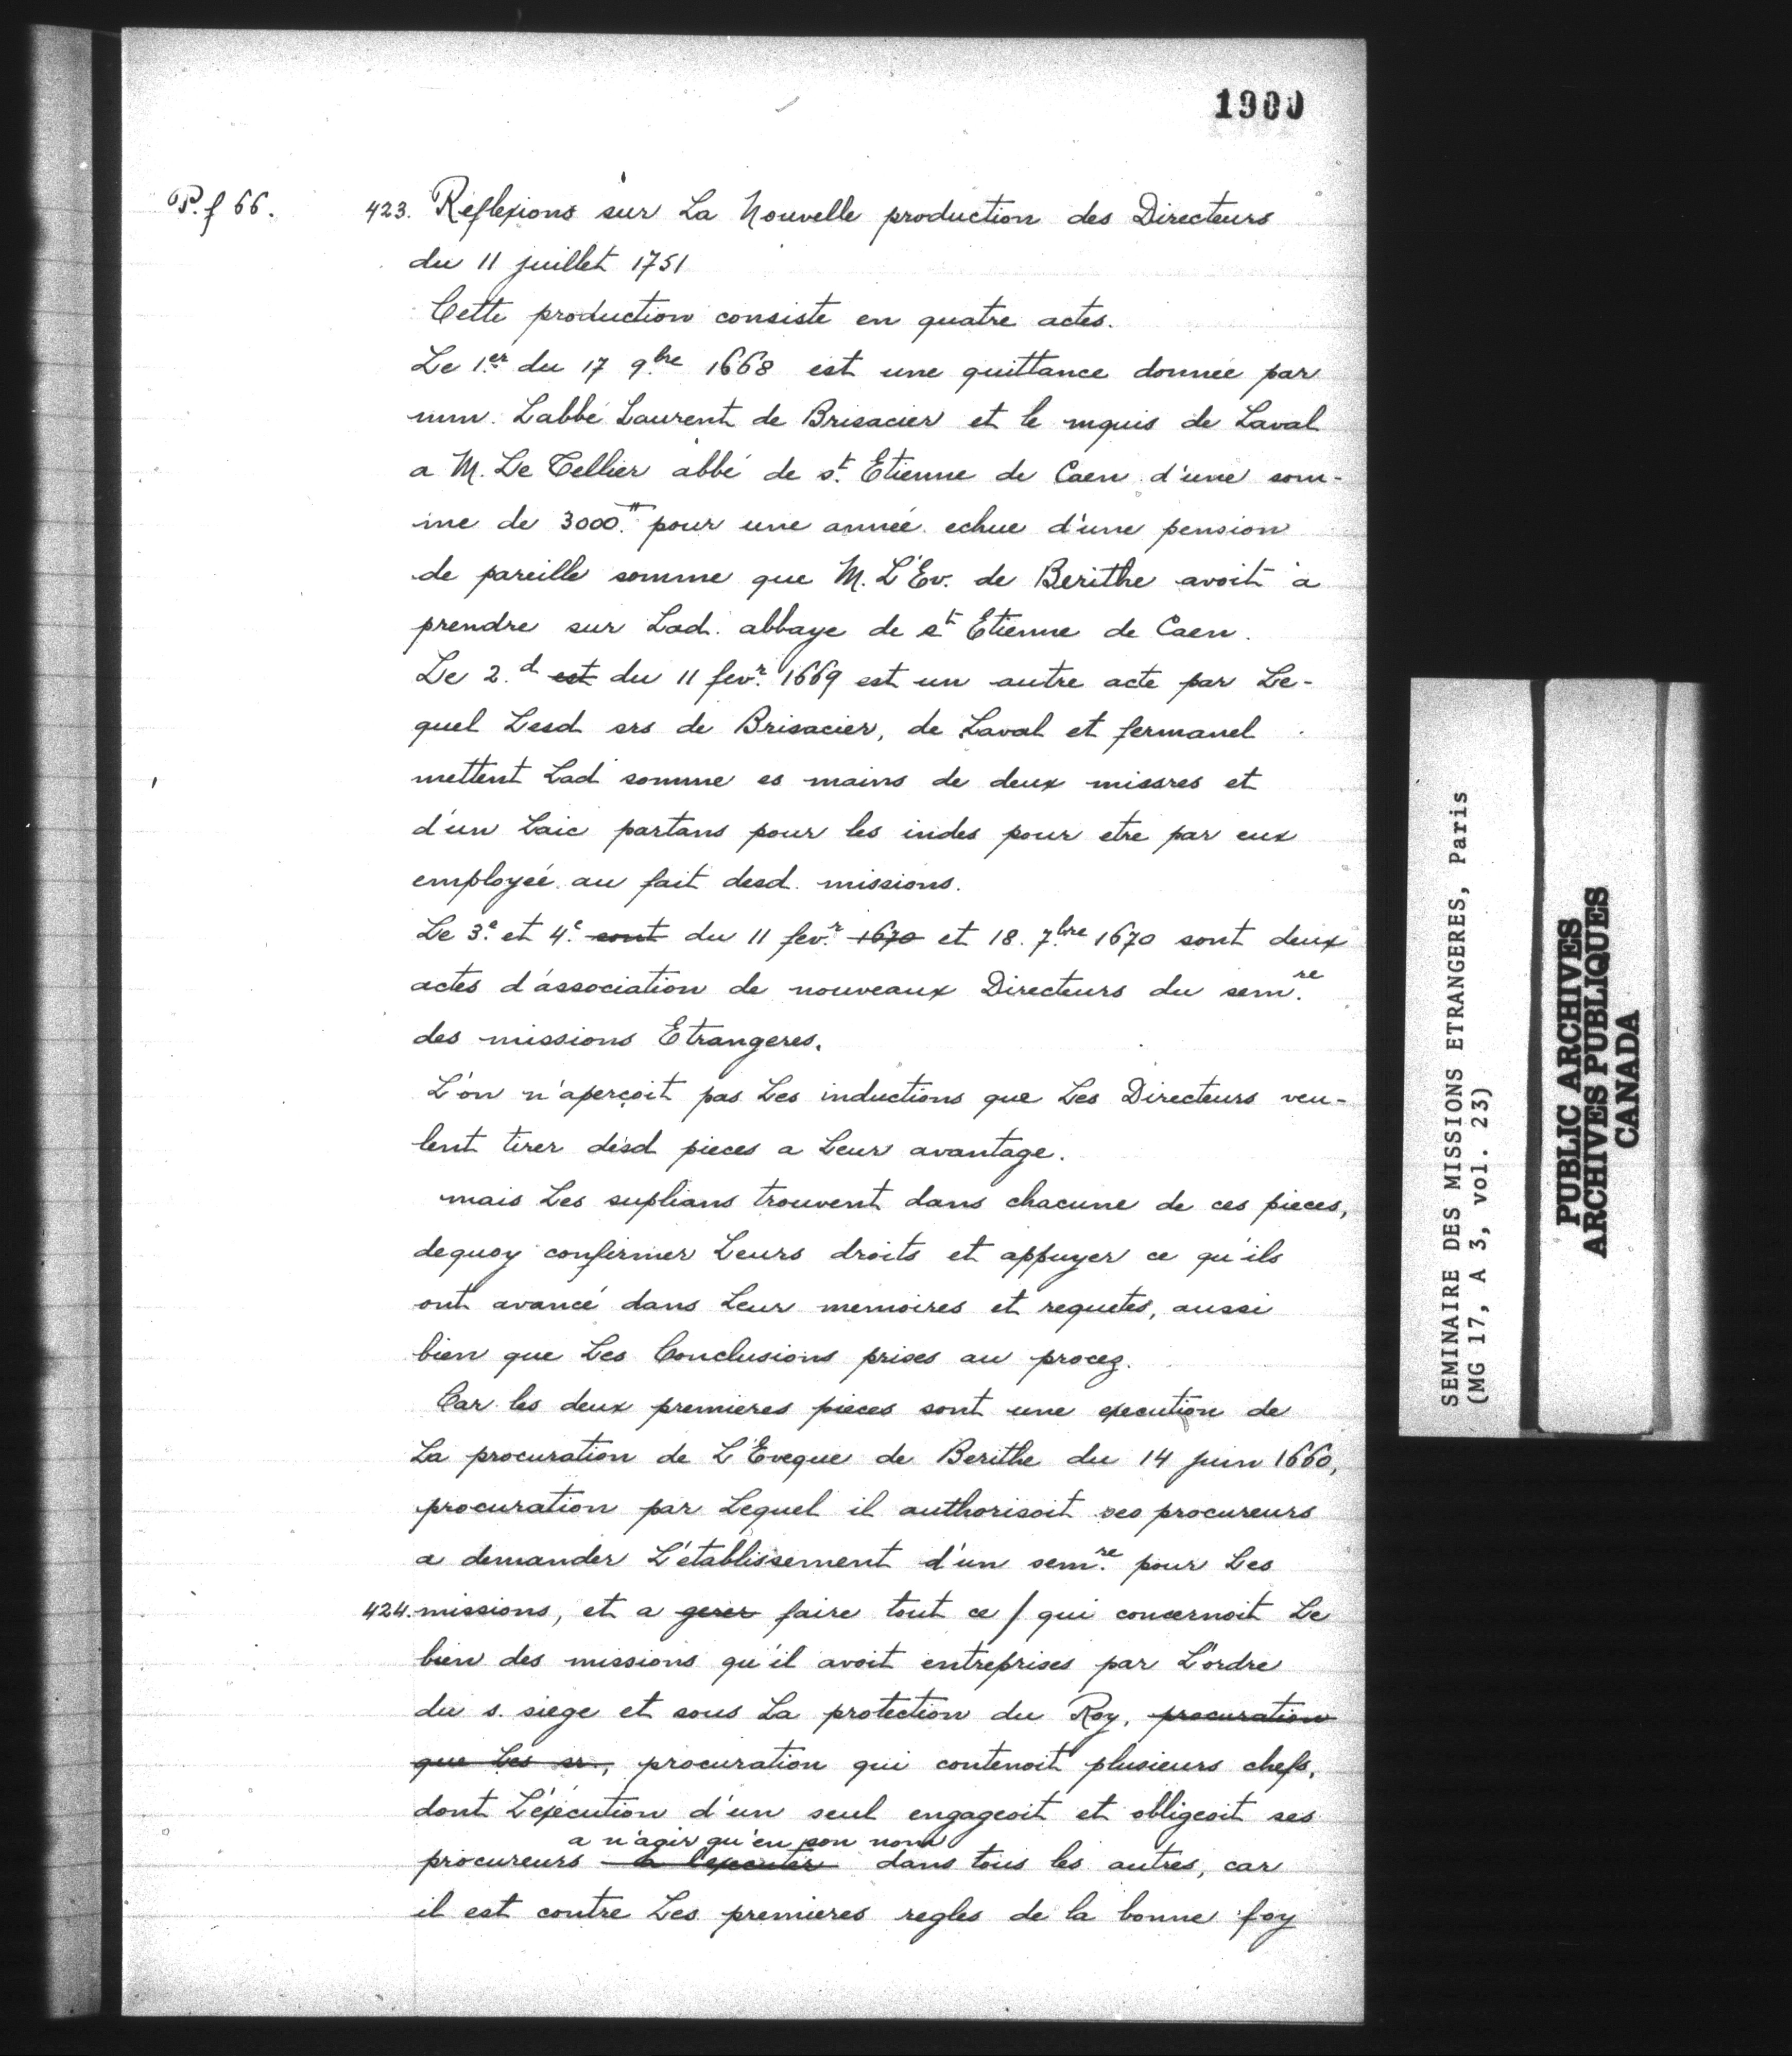 1900
P. f 66.
423. Reflexions sur La Nouvelle production des Directeurs
du 11 juillet 1751
Cette production consiste en quatre actes.
Le 1.er du 17 9.bre 1668 est une quittance donnée par
mm. Labbé Laurent de Brisacier et le mquis de Laval
a M. Le Tellier abbé de st. Etienne de Caen d'une som-
me de 3000.# pour une année echue d'une pension
de pareille somme que M. L'Ev. de Berithe avoit a
prendre sur Lad. abbaye de st Etienne de Caen.
Le 2.d est du 11 fevr. 1669 est un autre acte par Le-
quel Lesd srs de Brisacier, de Laval et fermanel
mettent Lad somme es mains de deux missres et
d'un Laic partans pour les indes pour etre par eux
employée au fait desd. missions.
Le 3.e et 4.e sont du 11 fev.r 1670 et 18. 7.bre 1670 sont deux
actes d'association de nouveaux Directeurs du sem.re
des missions Etrangeres.
L'on n'aperçoit pas Les inductions que Les Directeurs veu-
lent tirer desd pieces a Leur avantage.
mais Les suplians trouvent dans chacune de ces pieces,
dequoy confirmer Leurs droits et appuyer ce qu'ils
ont avancé dans Leur memoires et requetes, aussi
bien que Les Conclusions prises au procez.
Car les deux premieres pieces sont une execution de
La procuration de L'Eveque de Berithe du 14 juin 1660,
procuration par Lequel il authorisoit ses procureurs
a demander L'etablissement d'un sem.re pour Les
424. missions, et a gerer faire tout ce / qui concernoit Le
bien des missions qu'il avoit entreprises par L'ordre
du s. siege et sous La protection du Roy, procuration
que Les sr., procuration qui contenoit plusieurs chefs,
dont L'éxécution d'un seul engageoit et obligeoit ses
a n'agir qu'en son nom
procureurs a l'executer dans tous les autres, car
il est contre Les premieres regles de la bonne foy
SEMINAIRE DES MISSIONS ETRANGERES, Paris
(MG 17, A 3, vol. 23)
PUBLIC ARCHIVES
ARCHIVES PUBLIQUES
CANADA